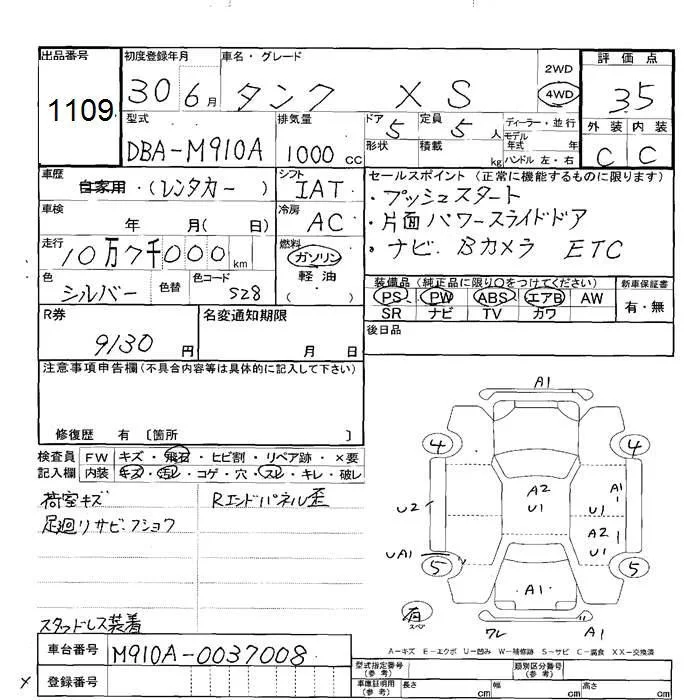 出品番号
1109
初度登録年月
30 6月
車名・グレード
タンク XS
2WD
4WD
評価点
3.5
型式
DBA-M910A
排気量
1000 CC
ドア 5
定員 5 人
形状
積載 kg
ディーラー・並行
モデル
年式 年
ハンドル 左・右
外装 内装
C C
車歴
自家用・(レンタカー)
シフト
IAT
車検
年 月( 日)
冷房
AC
走行
10万7千000 km
燃料
ガソリン
軽油
色
シルバー
色替
色コード
S28
セールスポイント (正常に機能するものに限ります)
・プッシュスタート
・片面パワースライドドア
・ナビ. Bカメラ ETC
装備品 (純正品に限り○をつけてください)
PS PW ABS エアB AW
SR ナビ TV カワ
新車保証書
有・無
R券
9130 円
名変通知期限
月 日
後日品
注意事項申告欄(不具合内容等は具体的に記入して下さい)
修復歴 有 〔箇所 〕
検査員
記入欄
FW キズ・飛石・ヒビ割・リペア跡・×要
内装 キズ・汚レ・コゲ・穴・スレ・キレ・破レ
荷室キズ
Rエンドパネル歪
足廻りサビ・フショク
スタッドレス装着
A1
4 4
A2
U1
A1
U2
A2
U1
UA1
5 5
A1
有
スペ
ワレ
A1
A=キズ E=エクボ U=凹み W=補修跡 S=サビ C=腐食 XX=交換済
車台番号
M910A-0037008
登録番号
×
型式指定番号
(参考)
類別区分番号
(参考)
車庫証明用
(参考)
長さ cm
幅 cm
高さ cm